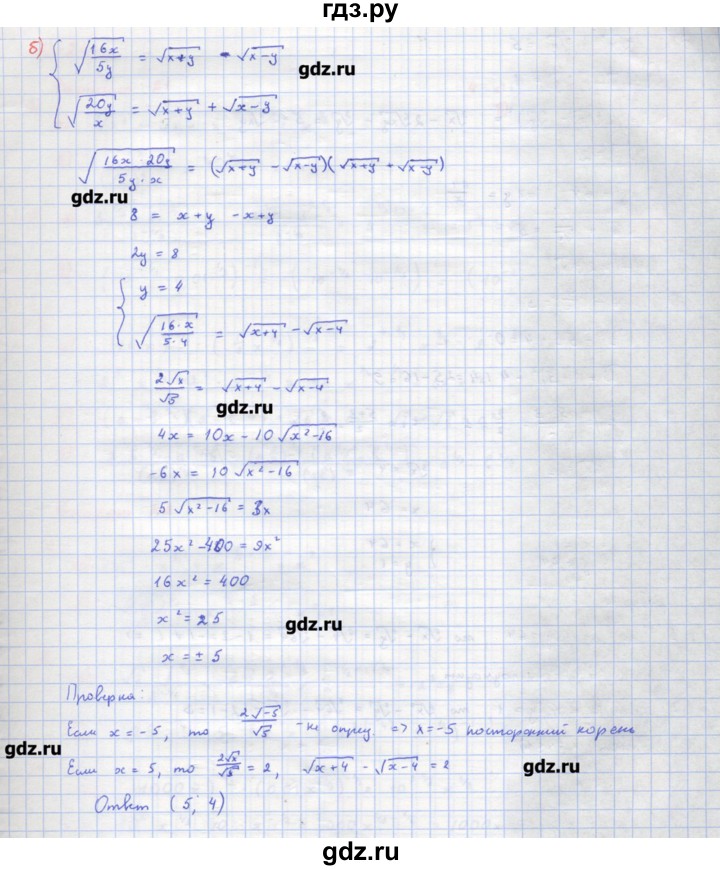 гдз.ру
б) { √(16x/5y) = √(x+y) - √(x-y)
gdz.ru
√(20y/x) = √(x+y) + √(x-y)
√(16x·20y/5y·x) = (√(x+y) - √(x-y))(√(x+y) + √(x-y))
gdz.ru
8 = x+y -x+y
2y = 8
{ y = 4
√(16·x/5·4) = √(x+4) - √(x-4)
2√x/√5 = √(x+4) - √(x-4)
gdz.ru
4x = 10x - 10√(x²-16)
-6x = 10√(x²-16)
5√(x²-16) = 3x
25x² - 400 = 9x²
16x² = 400
x² = 25
gdz.ru
x = ± 5
Проверка:
Если x = -5, то 2√-5/√5 - не опред. => x=-5 посторонний корень
gdz.ru
Если x = 5, то 2√x/√5 = 2, √(x+4) - √(x-4) = 2
gdz.ru
Ответ (5; 4)
gdz.ru